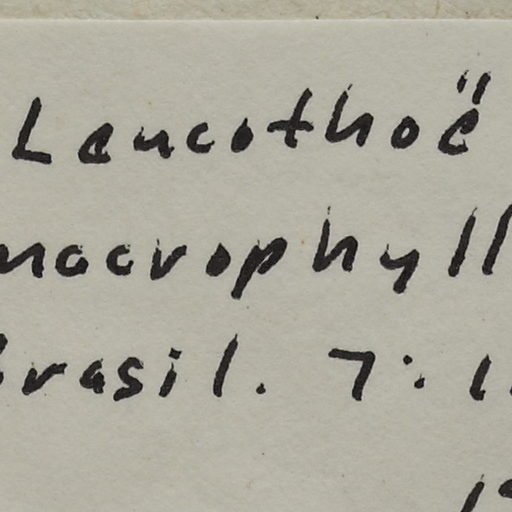 Leucothoë
macrophyll
Brasil. 7:1